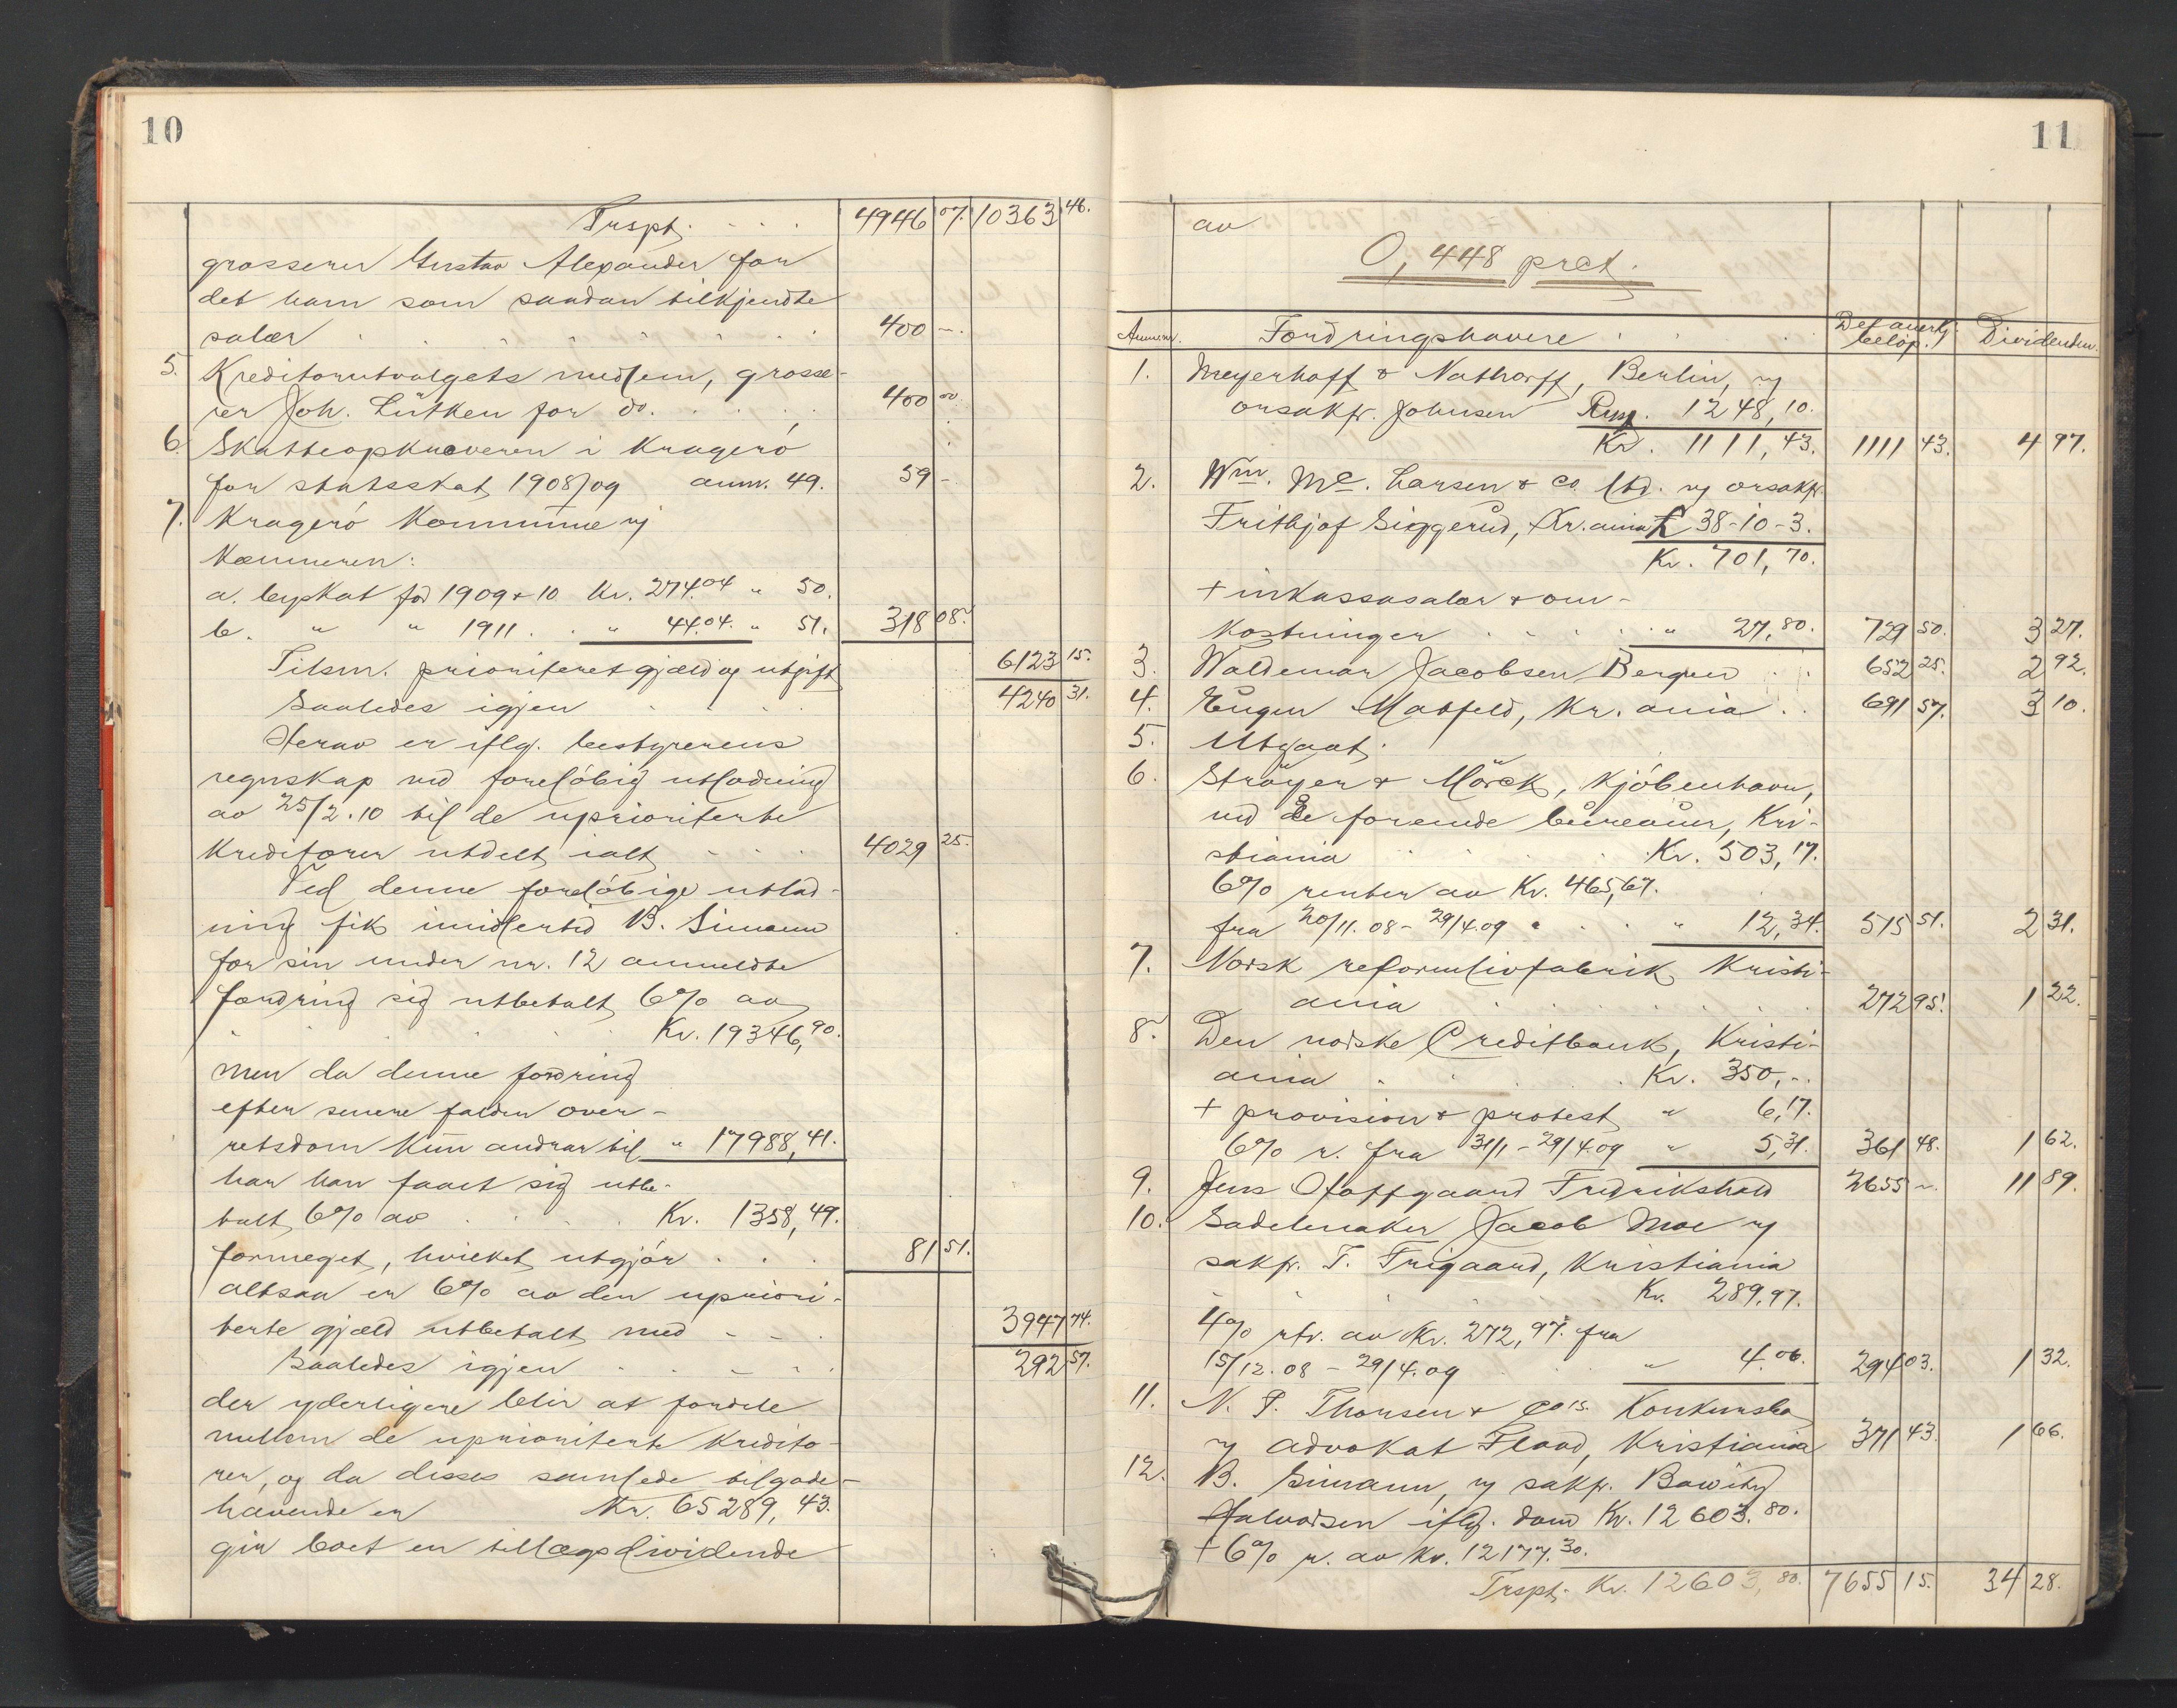 10
Trspt. . . . 4946 07. 10363 46.
grosserer Gustav Alexander for
det ham som saadan tilkjendte
salær . . . . . . . 400 –.
5. Kreditorutvalgets medlem, grosse-
rer Joh. Lütken for do. . . . . 400 00
6. Skatteopkræveren i Kragerö
for statsskat 1908/09 anm. 49. 59 –
7. Kragerö Kommune v/
Kæmneren:
a. byskat for 1909 + 10 Kr. 274.04 " 50.
b. " " 1911 . . " 44.04. " 51. 318 08.
Tilsm. prioriteret gjæld og utgift 6123 15.
Saaledes igjen . . . . 4240 31.
Herav er iflg. bestyrerens
regnskap ved foreløbig utlodning
av 25/2.10 til de uprioriterte
Kreditorer utdelt ialt . . . 4029 25.
Ved denne foreløbige utlod-
ning fik imidlertid B. Simann
for sin under nr. 12 anmeldte
fordring sig utbetalt 6% av
. . . . . Kr. 19346,90.
men da denne fordring
efter senere falden over-
retsdom kun andrar til " 17988,41.
har han faaet sig utbe-
talt 6% av . . . . Kr. 1358,49.
formeget, hvilket utgjör . . . 81 51.
altsaa er 6% av den upriori-
terte gjæld utbetalt med – – . 3947 74.
Saaledes igjen . . . . . 292 57.
der yderligere blir at fordele
mellem de uprioriterte kredito-
rer, og da disses samlede tilgode-
havende er Kr. 65289,43.
gir boet en tillægsdividende
11
av
0,448 prct.
Anm.nr. Fordringshavere . . . . Det anerkj. beløp. Dividenden.
1. Meyerhoff & Nathorff, Berlin, v/
orsakfr. Johnsen Rmp. 1248,10.
Kr. 1111,43. 1111 43. 4 97.
2. Wm. Mc. Larsen & Co. Ltd. v/ orsakfr.
Frithjof Siggerud, Kr.ania £ 38-10-3.
Kr. 701,70.
+ inkassosalær & om-
kostninger . . . . . " 27,80. 729 50. 3 27.
3. Waldemar Jacobsen, Bergen . . 652 25. 2 92.
4. Eugen Matfeld, Kr.ania . . 691 57. 3 10.
5. Utgaat.
6. Ströyer & Mörck, Kjöbenhavn,
ved De forenede bureauer, Kri-
stiania . . . . . Kr. 503,17.
6% renter av Kr. 465,67.
fra 20/11.08 – 29/4.09 . . . " 12,34. 515 51. 2 31.
7. Norsk reformlivfabrik, Kristi-
ania . . . . . . . 272 95. 1 22.
8. Den norske Creditbank, Kristi-
ania . . . . . Kr. 350,-.
+ provision & protest " 6,17.
6% r. fra 31/1 – 29/4.09 " 5,31. 361 48. 1 62.
9. Jens Olaffgaard Fredrikshald 2655 – 11 89.
10. Sadelmaker Jacob Moe v/
sakfr. T. Frigaard, Kristiania
. . . . . Kr. 289,97.
4% rtr. av Kr. 272,97. fra
15/12.08 – 29/4.09 . . " 4.06. 294 03. 1 32.
11. N. P. Thorsen & Co's. Konkursbo
v/ advokat Flood, Kristiania 371 43. 1 66.
12. B. Simann, v/ sakfr.
Halvorsen iflg. dom Kr. 12603.80.
+ 6% r. av Kr. 12177.30.
Trspt. Kr. 12603,80. 7655 15. 34 28.